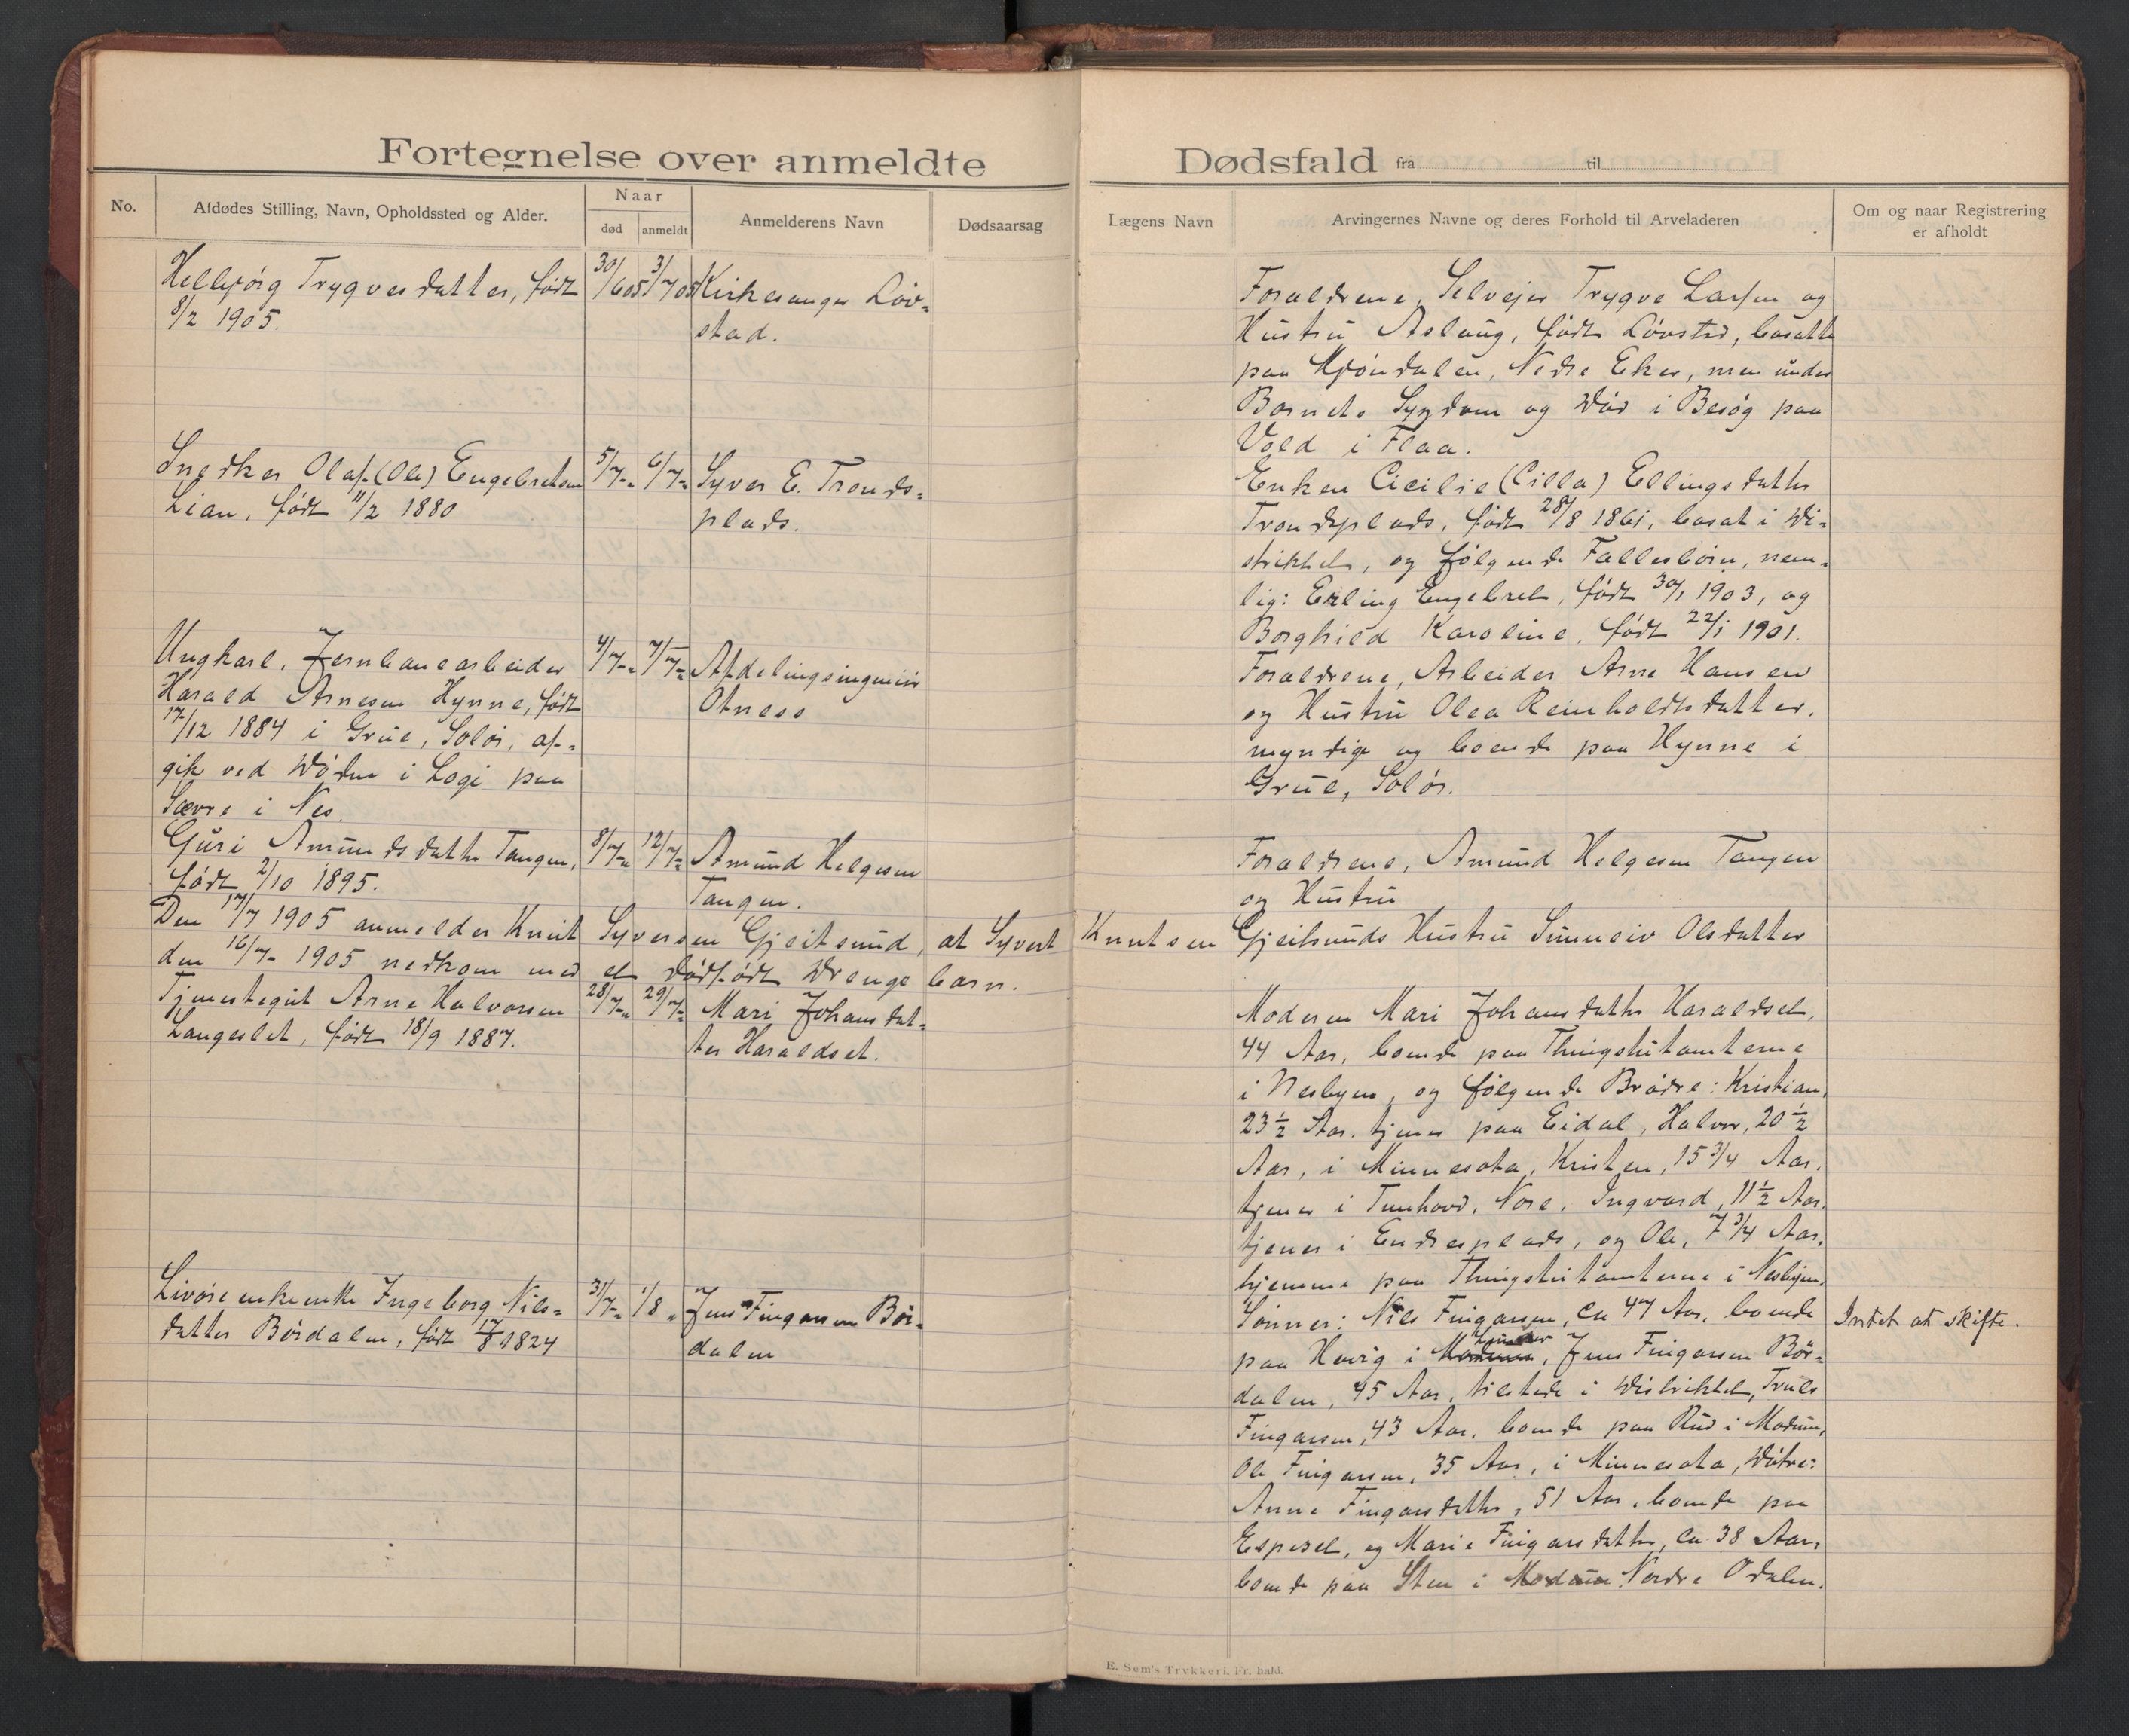 Fortegnelse over anmeldte
Dødsfald fra til
No.
Afdødes Stilling, Navn, Opholdssted og Alder.
Naar
død
anmeldt
Anmelderens Navn
Dødsaarsag
Lægens Navn
Arvingernes Navne og deres Forhold til Arveladeren
Om og naar Registrering
er afholdt
Helbjørg Trygvesdatter, født
8/2 1905.
30/6 05
3/7 05
Kirkesanger Løv-
stad.
Forældrene, Selvejer Trygve Larsen og
Hustru Aslaug, født Løvstad, bosatte
paa Mjøndalen, Nedre Eker, men under
Barnets Sygdom og Død i Besøg paa
Vold i Flaa.
Snedker Olaf (Ole) Engebretsen
Lian, født 11/2 1880
5/7-
6/7-
Syver E. Tronds-
plads.
Enken Cicilie (Cilla) Ellingsdatter
Trondsplads, født 28/8 1861, bosat i Di-
striktet, og følgende Fællesbørn, nem-
lig: Erling Engebret, født 30/1 1903, og
Borghild Karoline, født 22/1 1901.
Ungkarl, Jernbanearbeider
Harald Arnesen Hynne, født
17/12 1884 i Grue, Solør, af-
gik ved Døden i Logi paa
Sævre i Nes.
4/7-
7/7-
Afdelingsingeniør
Otness
Forældrene, Arbeider Arne Hansen
og Hustru Olea Reinholdtsdatter,
myndige og boende paa Hynne i
Grue, Solør.
Guri Amundsdatter Tangen,
født 2/10 1895.
8/7-
12/7-
Amund Helgesen
Tangen.
Forældrene, Amund Helgesen Tangen
og Hustru
Den 17/7 1905 anmelder Knut Syversen Gjeitsund, at Syvert Knutsen Gjeitsunds Hustru Sunneiv Olsdatter
den 16/7- 1905 nedkom med et dødfødt Drengebarn.
Tjenestegut Arne Halvorsen
Langeslet, født 18/9 1887.
28/7-
29/7-
Mari Johansdat-
ter Haraldset.
Moderen Mari Johansdatter Haraldset,
44 Aar, boende paa Thingstutomterne
i Nesbyen, og følgende Brødre: Kristian,
23 1/2 Aar, tjener paa Eidal, Halvor, 20 1/2
Aar, i Minnesota, Kristen, 15 3/4 Aar,
tjener i Tunhovd, Nore, Ingvard, 11 1/2 Aar,
tjener i Endresplads, og Ole, 7 3/4 Aar,
hjemme paa Thingstutomterne i Nesbyen.
Livøreenkeenke Ingeborg Nils-
datter Børdalen, født 17/8 1824
31/7-
1/8 "
Jens Fingarsen Bør-
dalen
Sønner: Nils Fingarsen, ca 47 Aar, boende
paa Hovig i Modum, Jens Fingarsen Bør-
dalen, 45 Aar, tilstede i Distriktet, Truls
Fingarsen, 43 Aar, boende paa Rud i Modum,
Ole Fingarsen, 35 Aar, i Minnesota, Døtre:
Anne Fingarsdatter, 51 Aar, boende paa
Espeset, og Marie Fingarsdatter, ca 38 Aar,
boende paa Sten i Modum Nordre Odalen.
Intet at skifte.
E. Sem's Trykkeri. Fr. hald.